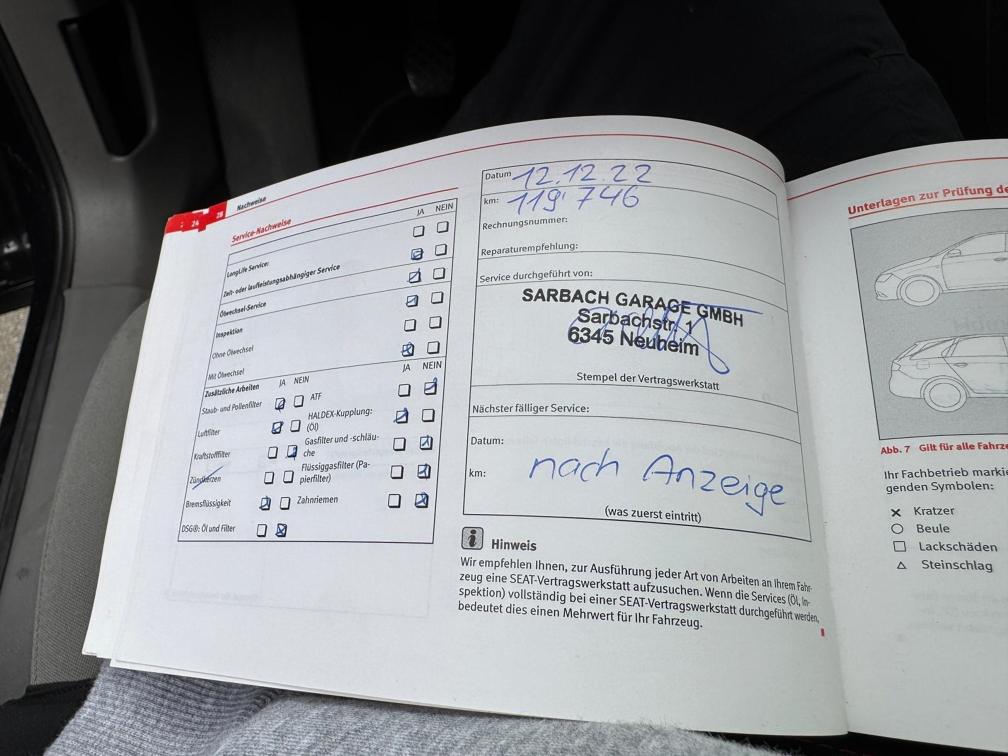 24
28
Nachweise
Service-Nachweise
JA NEIN
LongLife Service:
Zeit- oder laufleistungsabhängiger Service
Ölwechsel-Service
Inspektion
Ohne Ölwechsel
Mit Ölwechsel
Zusätzliche Arbeiten JA NEIN JA NEIN
Staub- und Pollenfilter ATF
Luftfilter HALDEX-Kupplung: (Öl)
Kraftstofffilter Gasfilter und -schläuche
Zündkerzen Flüssiggasfilter (Papierfilter)
Bremsflüssigkeit Zahnriemen
DSG®: Öl und Filter
Datum 12.12.22
km: 119'746
Rechnungsnummer:
Reparaturempfehlung:
Service durchgeführt von:
SARBACH GARAGE GMBH
Sarbachstr. 1
6345 Neuheim
Stempel der Vertragswerkstatt
Nächster fälliger Service:
Datum:
km: nach Anzeige
(was zuerst eintritt)
Hinweis
Wir empfehlen Ihnen, zur Ausführung jeder Art von Arbeiten an Ihrem Fahr-
zeug eine SEAT-Vertragswerkstatt aufzusuchen. Wenn die Services (Öl, In-
spektion) vollständig bei einer SEAT-Vertragswerkstatt durchgeführt werden,
bedeutet dies einen Mehrwert für Ihr Fahrzeug.
Unterlagen zur Prüfung de
Abb. 7 Gilt für alle Fahrze
Ihr Fachbetrieb markie
genden Symbolen:
Kratzer
Beule
Lackschäden
Steinschlag